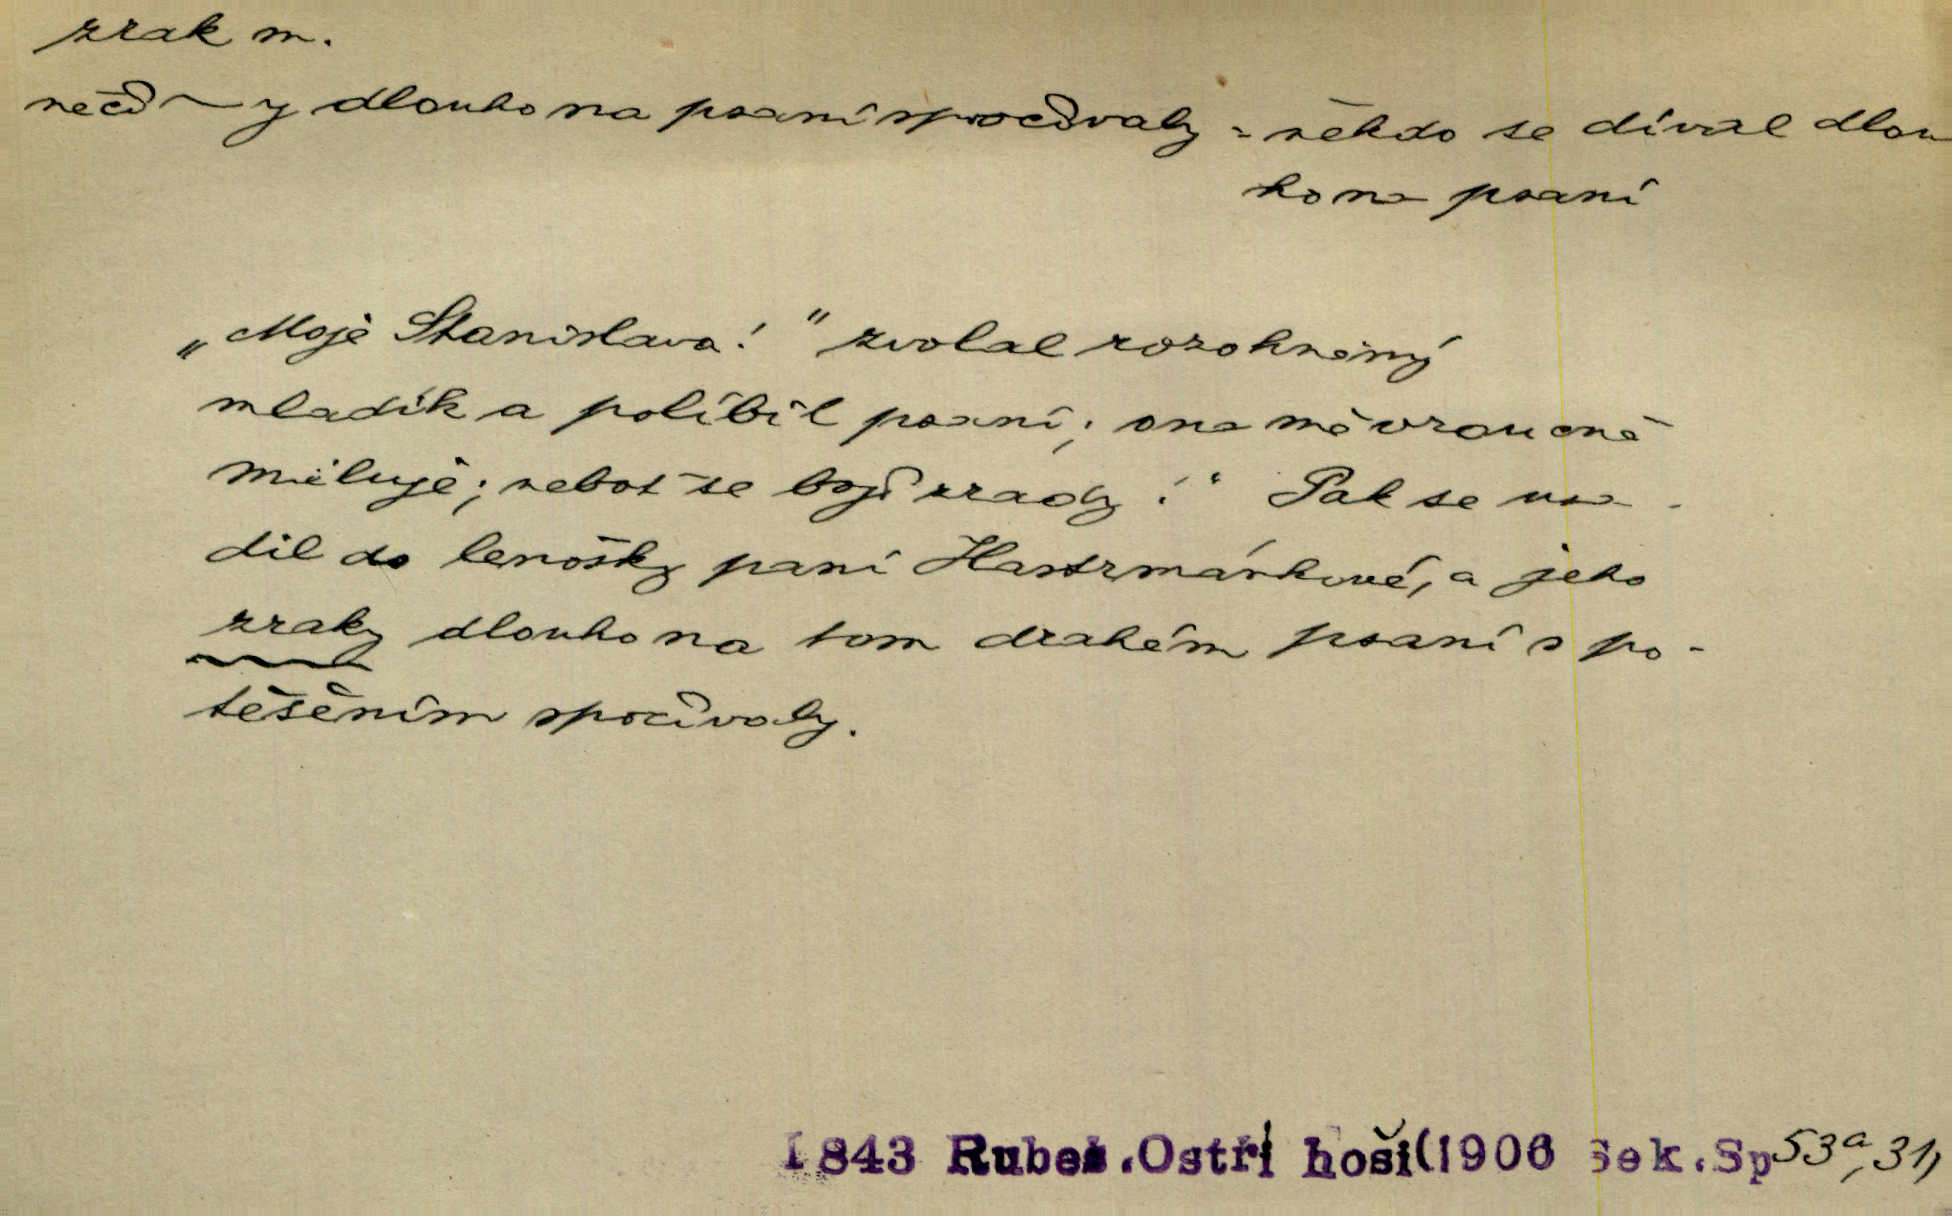 zrak m.
něčí ~y dlouho na psaní spočívaly = někdo se díval dlou
ho na psaní
„Moje Stanislava!" zvolal rozohněný
mladík a políbil psaní; ona mě vroucně
miluje; neboť se bojí zrady!" Pak se usa-
dil do lenošky paní Hastrmánkové, a jeho
zraky dlouho na tom drahém psaní s po-
těšením spočívaly.
1843 Rubeš.Ostří hoši(1906 Sek.Sp 53a,31)